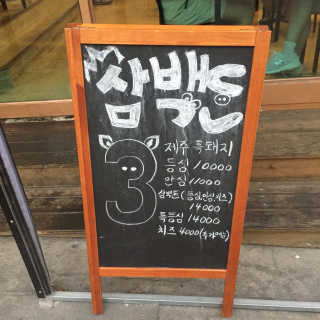 삼백돈
3
제주 흑돼지
등심 10000
안심 11000
삼백돈(등심,안심,치즈)
14000
특등심 14000
치즈 4000